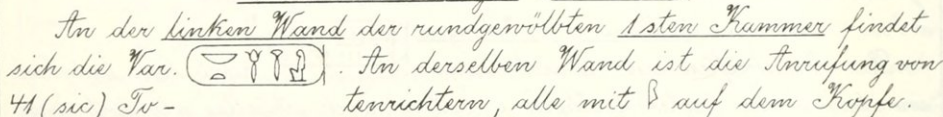 An der linken Wand der rundgewölbten 1sten Kammer findet
sich die Var. . An derselben Wand ist die Anrufung von
41 (sic) To- tenrichtern, alle mit auf dem Kopfe.